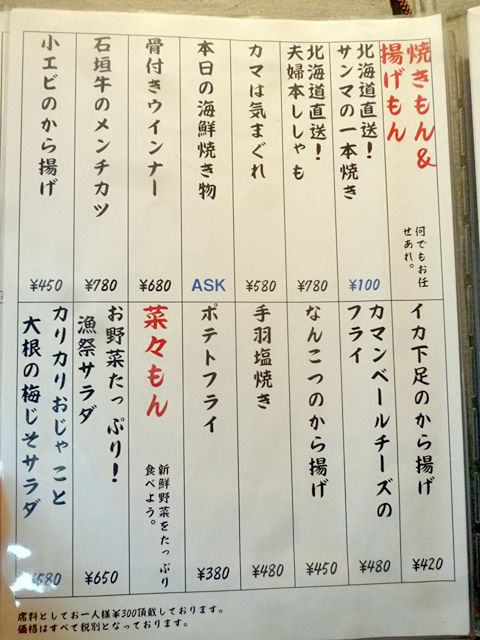 焼きもん&
揚げもん
何でもお任
せあれ。
北海道直送！
サンマの一本焼き
¥100
北海道直送！
夫婦本ししゃも
¥780
カマは気まぐれ
¥580
本日の海鮮焼き物
ASK
骨付きウインナー
¥680
石垣牛のメンチカツ
¥780
小エビのから揚げ
¥450
イカ下足のから揚げ
¥420
カマンベールチーズの
フライ
¥480
なんこつのから揚げ
¥450
手羽塩焼き
¥480
ポテトフライ
¥380
菜々もん
新鮮野菜をたっぷり
食べよう。
お野菜たっぷり！
漁祭サラダ
¥650
カリカリおじゃこと
大根の梅じそサラダ
¥580
席料としてお一人様¥300頂戴しております。
価格はすべて税別となっております。